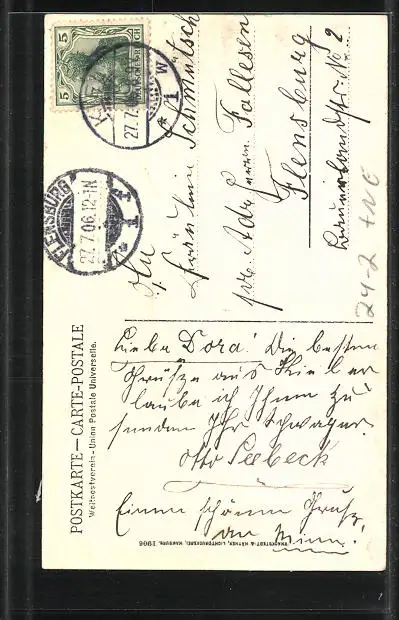 POSTKARTE — CARTE-POSTALE
Weltpostverein - Union Postale Universelle.
5 5
DEUTSCHES REICH
27.7.
* 1 W
FLENSBURG
27.7.06.12-1N
* 1
An
Fräulein Schmütsch
pr. Adr. Herrn Fallesen
Flensburg
No 2
24-2
Liebe Dora! Die besten
Grüsze aus Kiel er
laube ich Ihnen zu
senden Ihr Schwager.
Otto Seebeck
Einen schönen Grusz
an Minni!
KNACKSTEDT & NÄTHER, LICHTDRUCKEREI, HAMBURG. 1906